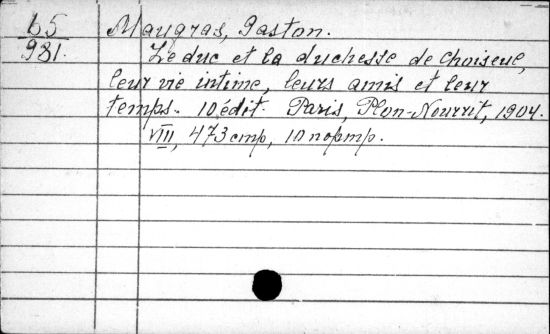 65
981.
Maugras, Gaston.
Le duc et la duchesse de Choiseul,
leur vie intime, leurs amis et leur
temps. 10 édit. Paris, Plon-Nourrit, 1904.
VIII, 473 стр, 10 портр.